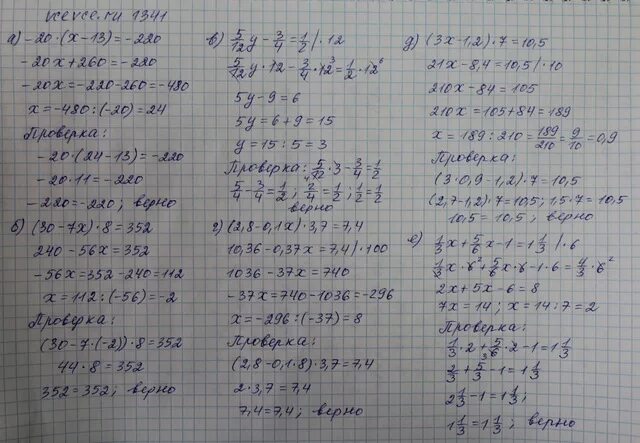 vcevce.ru 1341
а) -20·(x-13)=-220
-20x+260=-220
-20x=-220-260=-480
x=-480:(-20)=24
Проверка:
-20·(24-13)=-220
-20·11=-220
-220=-220; верно
б) (30-7x)·8=352
240-56x=352
-56x=352-240=112
x=112:(-56)=-2
Проверка:
(30-7·(-2))·8=352
44·8=352
352=352; верно
в) 5/12y-3/4=1/2/·12
5/12y·12-3/4·12³=1/2·12⁶
5y-9=6
5y=6+9=15
y=15:5=3
Проверка: 5/12₄·3-3/4=1/2
5/4-3/4=1/2; 2/4=1/2; 1/2=1/2
верно
г) (2,8-0,1x)·3,7=7,4
10,36-0,37x=7,4/·100
1036-37x=740
-37x=740-1036=-296
x=-296:(-37)=8
Проверка:
(2,8-0,1·8)·3,7=7,4
2·3,7=7,4
7,4=7,4; верно
д) (3x-1,2)·7=10,5
21x-8,4=10,5/·10
210x-84=105
210x=105+84=189
x=189:210=189/210=9/10=0,9
Проверка:
(3·0,9-1,2)·7=10,5
(2,7-1,2)·7=10,5; 1,5·7=10,5
10,5=10,5; верно
е) 1/3x+5/6x-1=1 1/3/·6
1/3x·6²+5/6x·6-1·6=4/3·6²
2x+5x-6=8
7x=14; x=14:7=2
Проверка:
1/3·2+5/6₃·2-1=1 1/3
2/3+5/3-1=1 1/3
2 1/3-1=1 1/3;
1 1/3=1 1/3; верно